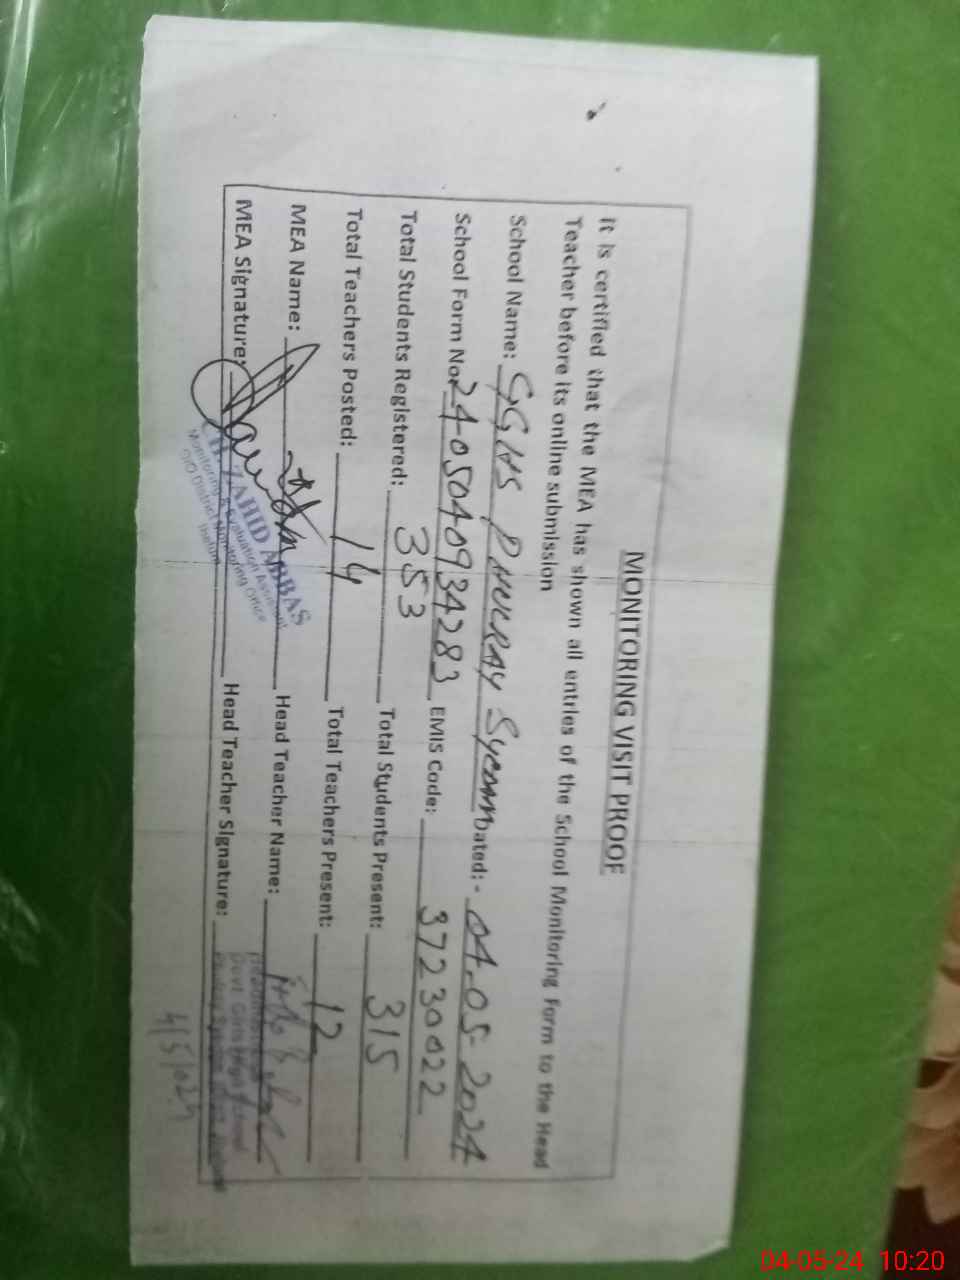 MONITORING VISIT PROOF
It is certified that the MEA has shown all entries of the School Monitoring Form to the Head
Teacher before its online submission
School Name: GGHS Dated: - 04-05-2024
School Form No: 2405040934283 EMIS Code: 37230022
Total Students Registered: 353 Total Students Present: 315
Total Teachers Posted: 14 Total Teachers Present: 12
MEA Name: Head Teacher Name:
MEA Signature: Head Teacher Signature:
ZAHID ABBAS
Monitoring & Evaluation Assistant
O/O District Monitoring Office
Jhelum
Headmistress
Govt. Girls High School
4/5/024
04-05-24 10:20